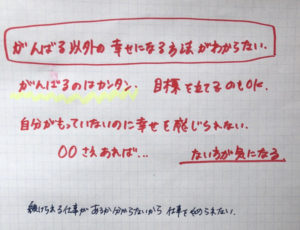 がんばる以外の幸せになる方法がわからない.
がんばるのはカンタン. 目標を立てるのもOK.
自分がもっていないのに幸せを感じられない.
○○さえあれば… ない方が気になる
続けられる仕事があるか分からないから仕事を辞められない.